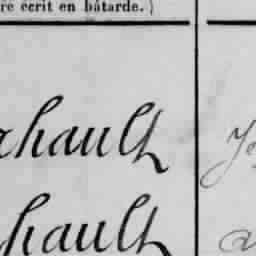 re écrit en bâtarde.)
hault
hault